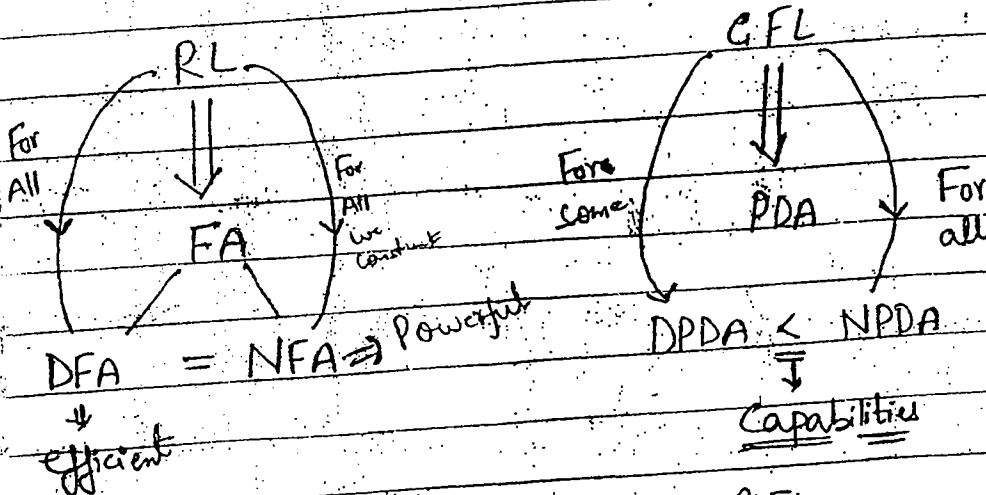 RL
For
All
FA
For
All
we
construct
DFA = NFA ⇒ Powerful
⇓
efficient
CFL
Fore
some
PDA
For
all
DPDA < NPDA
↓
Capabilities